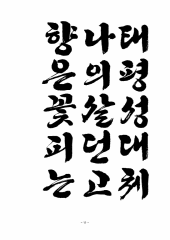 태평성대체
나의살던고
향은꽃피는